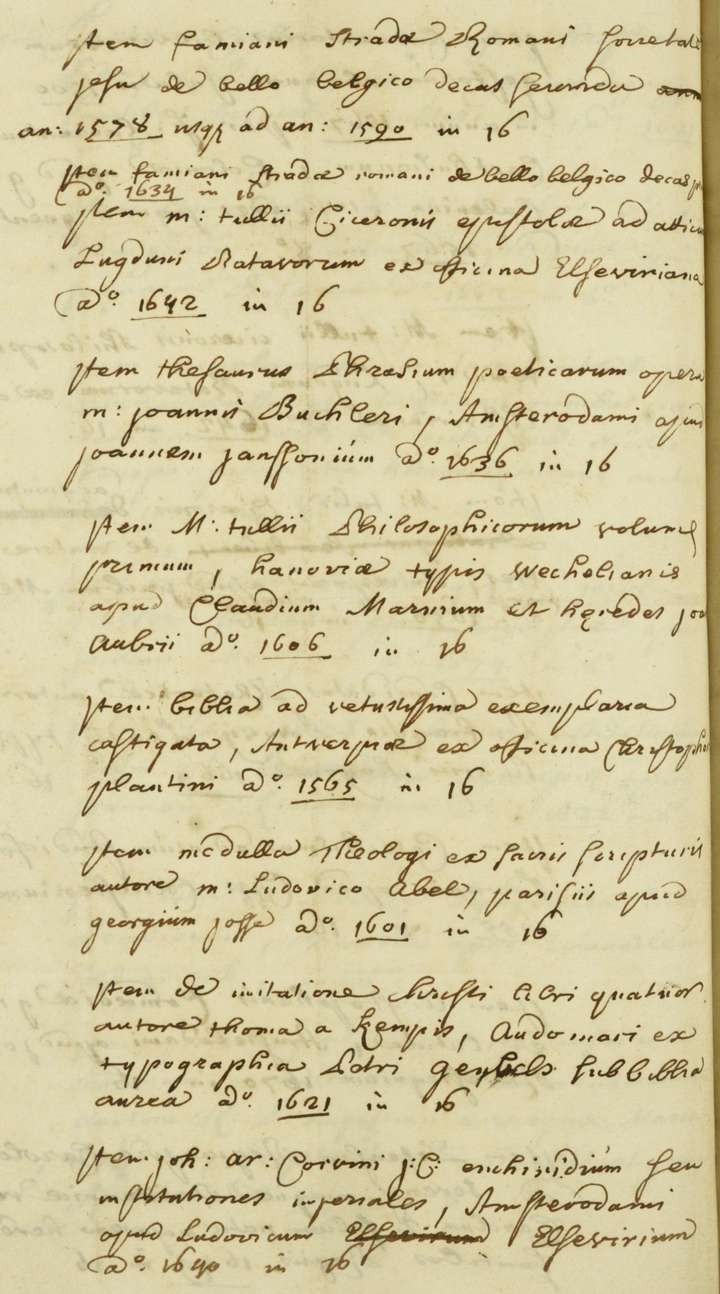 jtem famiani Stradæ Romani Societat
jesu de bello belgico decas secunda
an: 1578 usq ad an: 1590 in 16
jtem famiani Stradæ romani de bello belgico decas
aº. 1634 in 16
jtem m: tullii Ciceronis epistolæ ad attic
Lugduni Batavorum ex officina Elseviriana
aº. 1642 in 16
jtem thesaurus Phrasium poeticarum opera
m: joannis Buchleri, Amsterodami apud
joannem janssonium aº. 1636 in 16
jtem M: tullii Philosophicorum volumē
primum, hanoviæ typis wechelianis
apud Claudium Marnium et hęredes joa
Aubrii aº. 1606 in 16
jtem biblia ad vetustissima exemplaria
castigata, Antverpiæ ex officina Christoph
plantini aº. 1565 in 16
jtem medulla Theologi ex sacris scripturis
autore m: Ludovico Abel, parisiis apud
georgium josse aº. 1601 in 16
jtem de imitatione Christi libri quatuor
autore thoma a Kempis, Audomari ex
typographia Petri sub biblia
aurea aº. 1621 in 16
jtem joh: ar: Corvini j:C: enchiridium seu
institutiones imperiales, Amsterodami
apud Ludovicum Elsevirium Elsevirium
aº. 1640 in 16